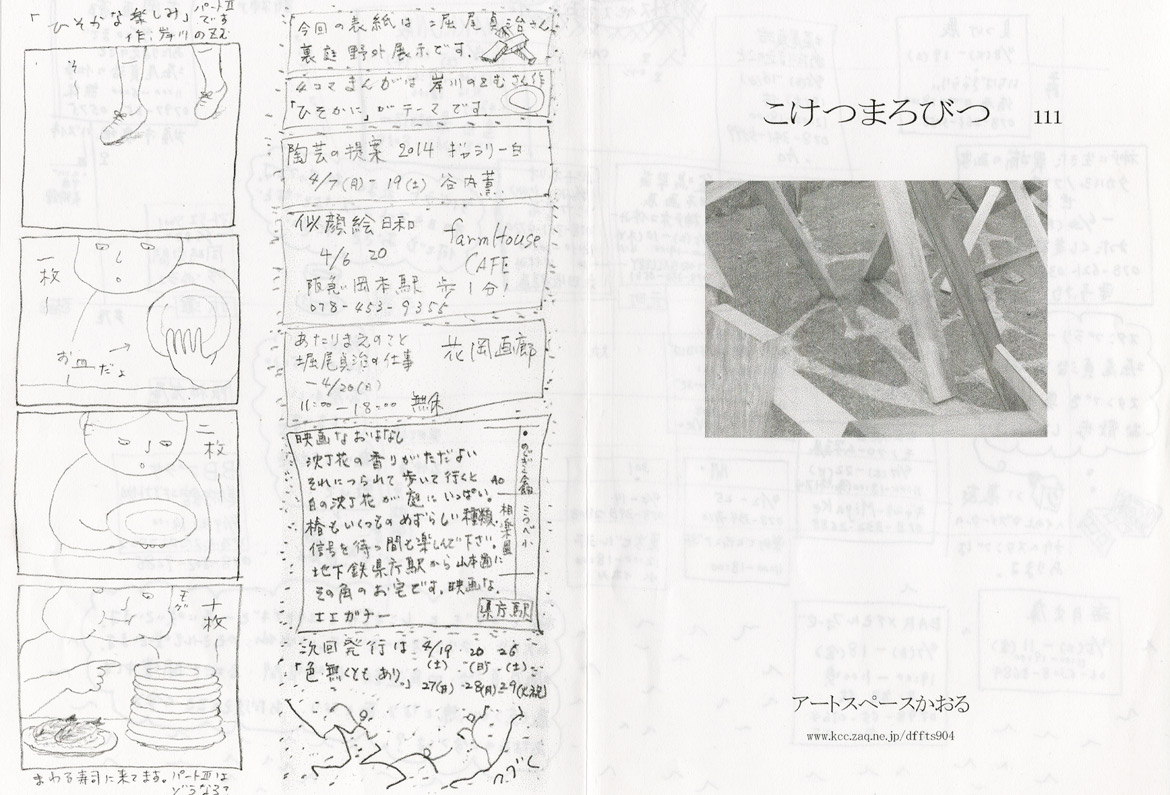 「ひそかな楽しみ」パートⅡ
です
作:岸川のぞむ
そ
一枚
お皿だよ
二枚
十枚
まわる寿司に来てます。パートⅢは
どうなる?
「今回の表紙は堀尾貞治さん
裏庭野外展示です。
4コマまんがは岸川のぞむさん作
「ひそかに」がテーマです。
陶芸の提案 2014 ギャラリー白
4/7(月)-19(土) 谷内薫.
似顔絵日和 farmHouse
CAFE
4/6 20
阪急 岡本駅 歩1分!
078-453-9355
あたりまえのこと
堀尾貞治の仕事 花岡画廊
-4/20(月)
11:00-18:00 無休
映画なおはなし
沈丁花の香りがただよい
それにつられて歩いて行くと
白の沈丁花が庭にいっぱい。
椿もいくつものめずらしい種類。
信号を待つ間も楽しんで下さい。
地下鉄県庁駅から山本通に
その角のお宅です。映画な。
エエガナ
相楽園
県庁駅
次回発行は 4/19 20 26
(土) (日) (土)
「色無くともあり。」27(日) 28(月) 29(火祝)
つづく
こけつまろびつ 111
アートスペースかおる
www.kcc.zaq.ne.jp/dffts904